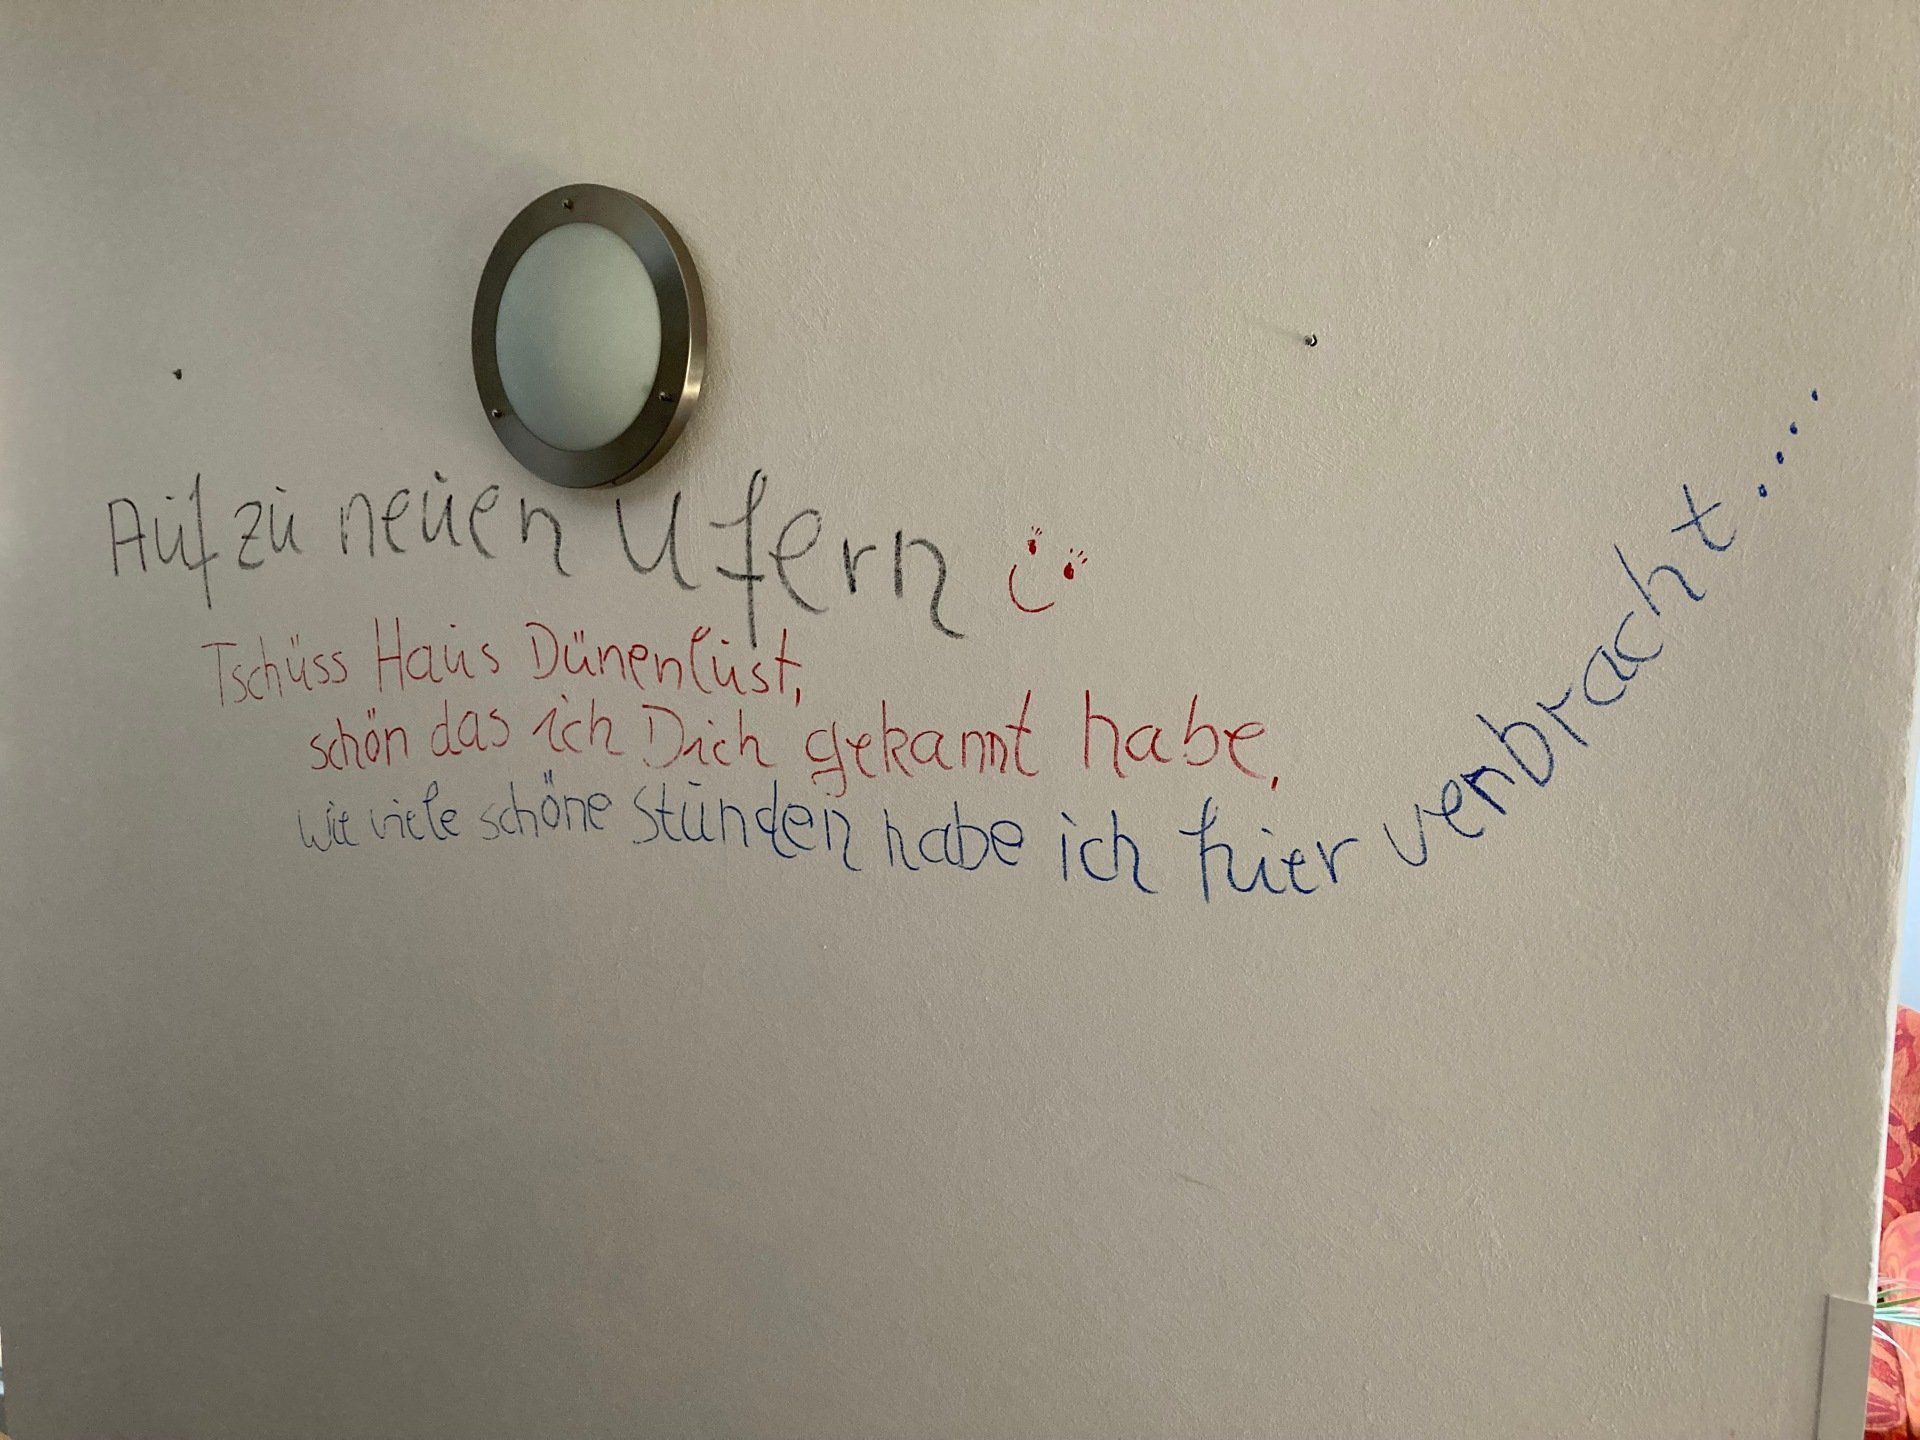 Auf zu neuen Ufern
Tschüss Haus Dünenlust,
schön das ich Dich gekannt habe,
wie viele schöne Stunden habe ich hier verbracht....